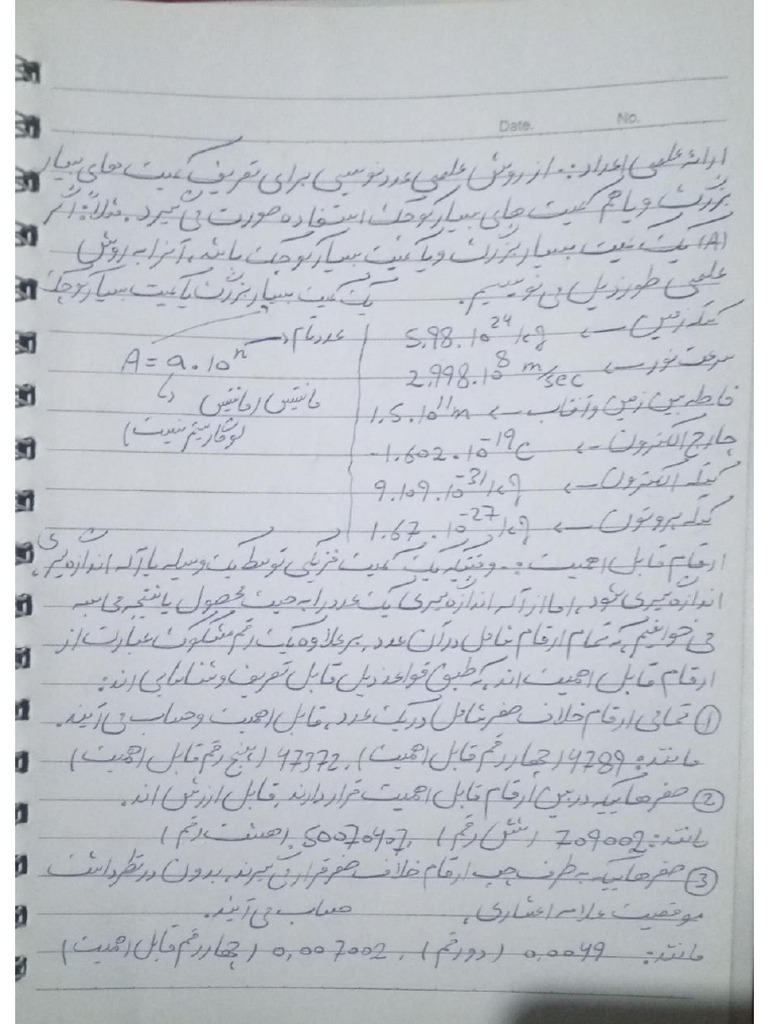 Date. No.
ارائهٔ علمی اعداد:- از روش علمی عددنویسی برای تعریف کمیت های بسیار
بزرگ و یا هم کمیت های بسیار کوچک استفاده صورت می گیرد. مثلاً: اگر
(A) یک کمیت بسیار بزرگ و یا کمیت بسیار کوچک باشد، آنرا به روش
علمی طور ذیل می نویسیم. یک کمیت بسیار بزرگ یا کمیت بسیار کوچک
کتله زمین ← 5,98.10²⁴ kg
عدد تام
سرعت نور ← 2,998.10⁸ m/sec
A = a.10ⁿ
فاصله بین زمین و آفتاب ← 1.5.10¹¹ m
مانتیس (مانتیس
چارج الکترون ← -1.602.10⁻¹⁹ C
لوگاریتم نیست)
کتله الکترون ← 9.109.10⁻³¹ kg
کتله پروتون ← 1.67.10⁻²⁷ kg
ارقام قابل اهمیت:- وقتیکه یک کمیت فزیکی توسط یک وسیله یا آله اندازه گیری،
اندازه گیری شود، اما از آله اندازه گیری یک عدد را به حیث محصول یا نتیجه می
می خوانیم که تمام ارقام شامل در آن عدد، بر علاوه یک رقم مشکوک عبارت از
ارقام قابل اهمیت اند، که طبق قواعد ذیل قابل تعریف و شناسایی اند:
① تمامی ارقام خلاف صفر شامل در یک عدد، قابل اهمیت و حساب می آیند.
مانند: 4789 (چهار رقم قابل اهمیت)، 47372 (پنج رقم قابل اهمیت)
② صفرهاییکه در بین ارقام قابل اهمیت قرار دارند، قابل ارزش اند.
مانند: 709002 (شش رقم)، 50070407 (هشت رقم)
③ صفرهاییکه به طرف چپ ارقام خلاف صفر قرار می گیرند، بدون در نظر داشت
موقعیت علامه اعشاری، حساب می آیند.
مانند: 0,0049 (دو رقم)، 0,007002 (چهار رقم قابل اهمیت)